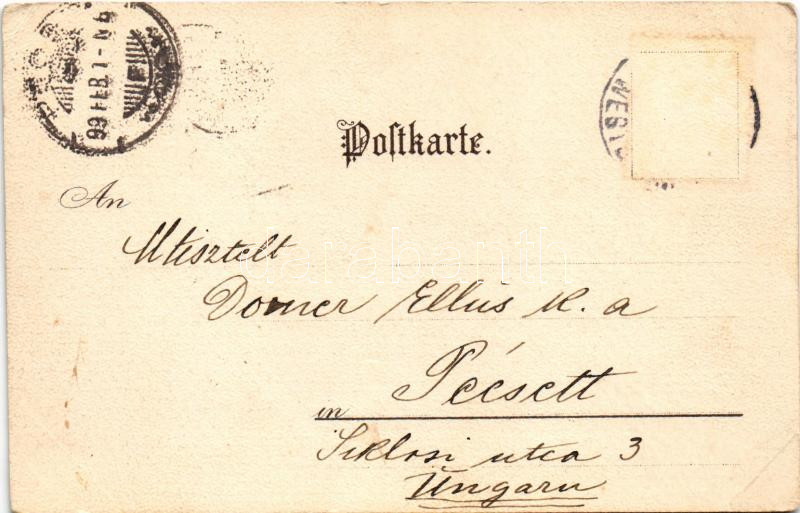 99 FEB 1 - N 4
WEST
Postkarte.
An
Mtisztelt
Dorner Ellus k. a
Péésett
in
Siklosi utca 3
Ungarn